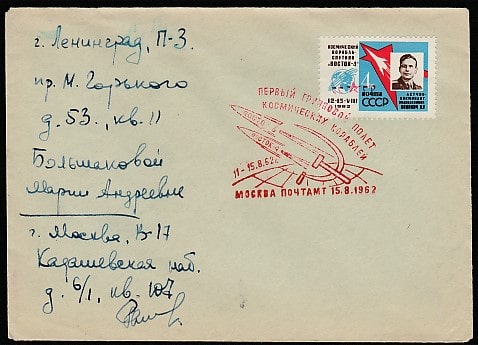 г. Ленинград, П-3.
пр. М. Горького
д. 53, кв. 11
Большаковой
Марии Андреевне
г. Москва, В-17
Кадашевская наб.
д. 6/1, кв. 107
КОСМИЧЕСКИЙ
КОРАБЛЬ-
СПУТНИК
"ВОСТОК-4"
12-15-VIII
1962
4
ПОЧТА
СССР
ЛЕТЧИК-
КОСМОНАВТ
ПОПОВИЧ П.Р.
ПЕРВЫЙ ГРУППОВОЙ ПОЛЕТ
КОСМИЧЕСКИХ КОРАБЛЕЙ
ВОСТОК-4
11-15.8.62г.
МОСКВА ПОЧТАМТ 15.8.1962